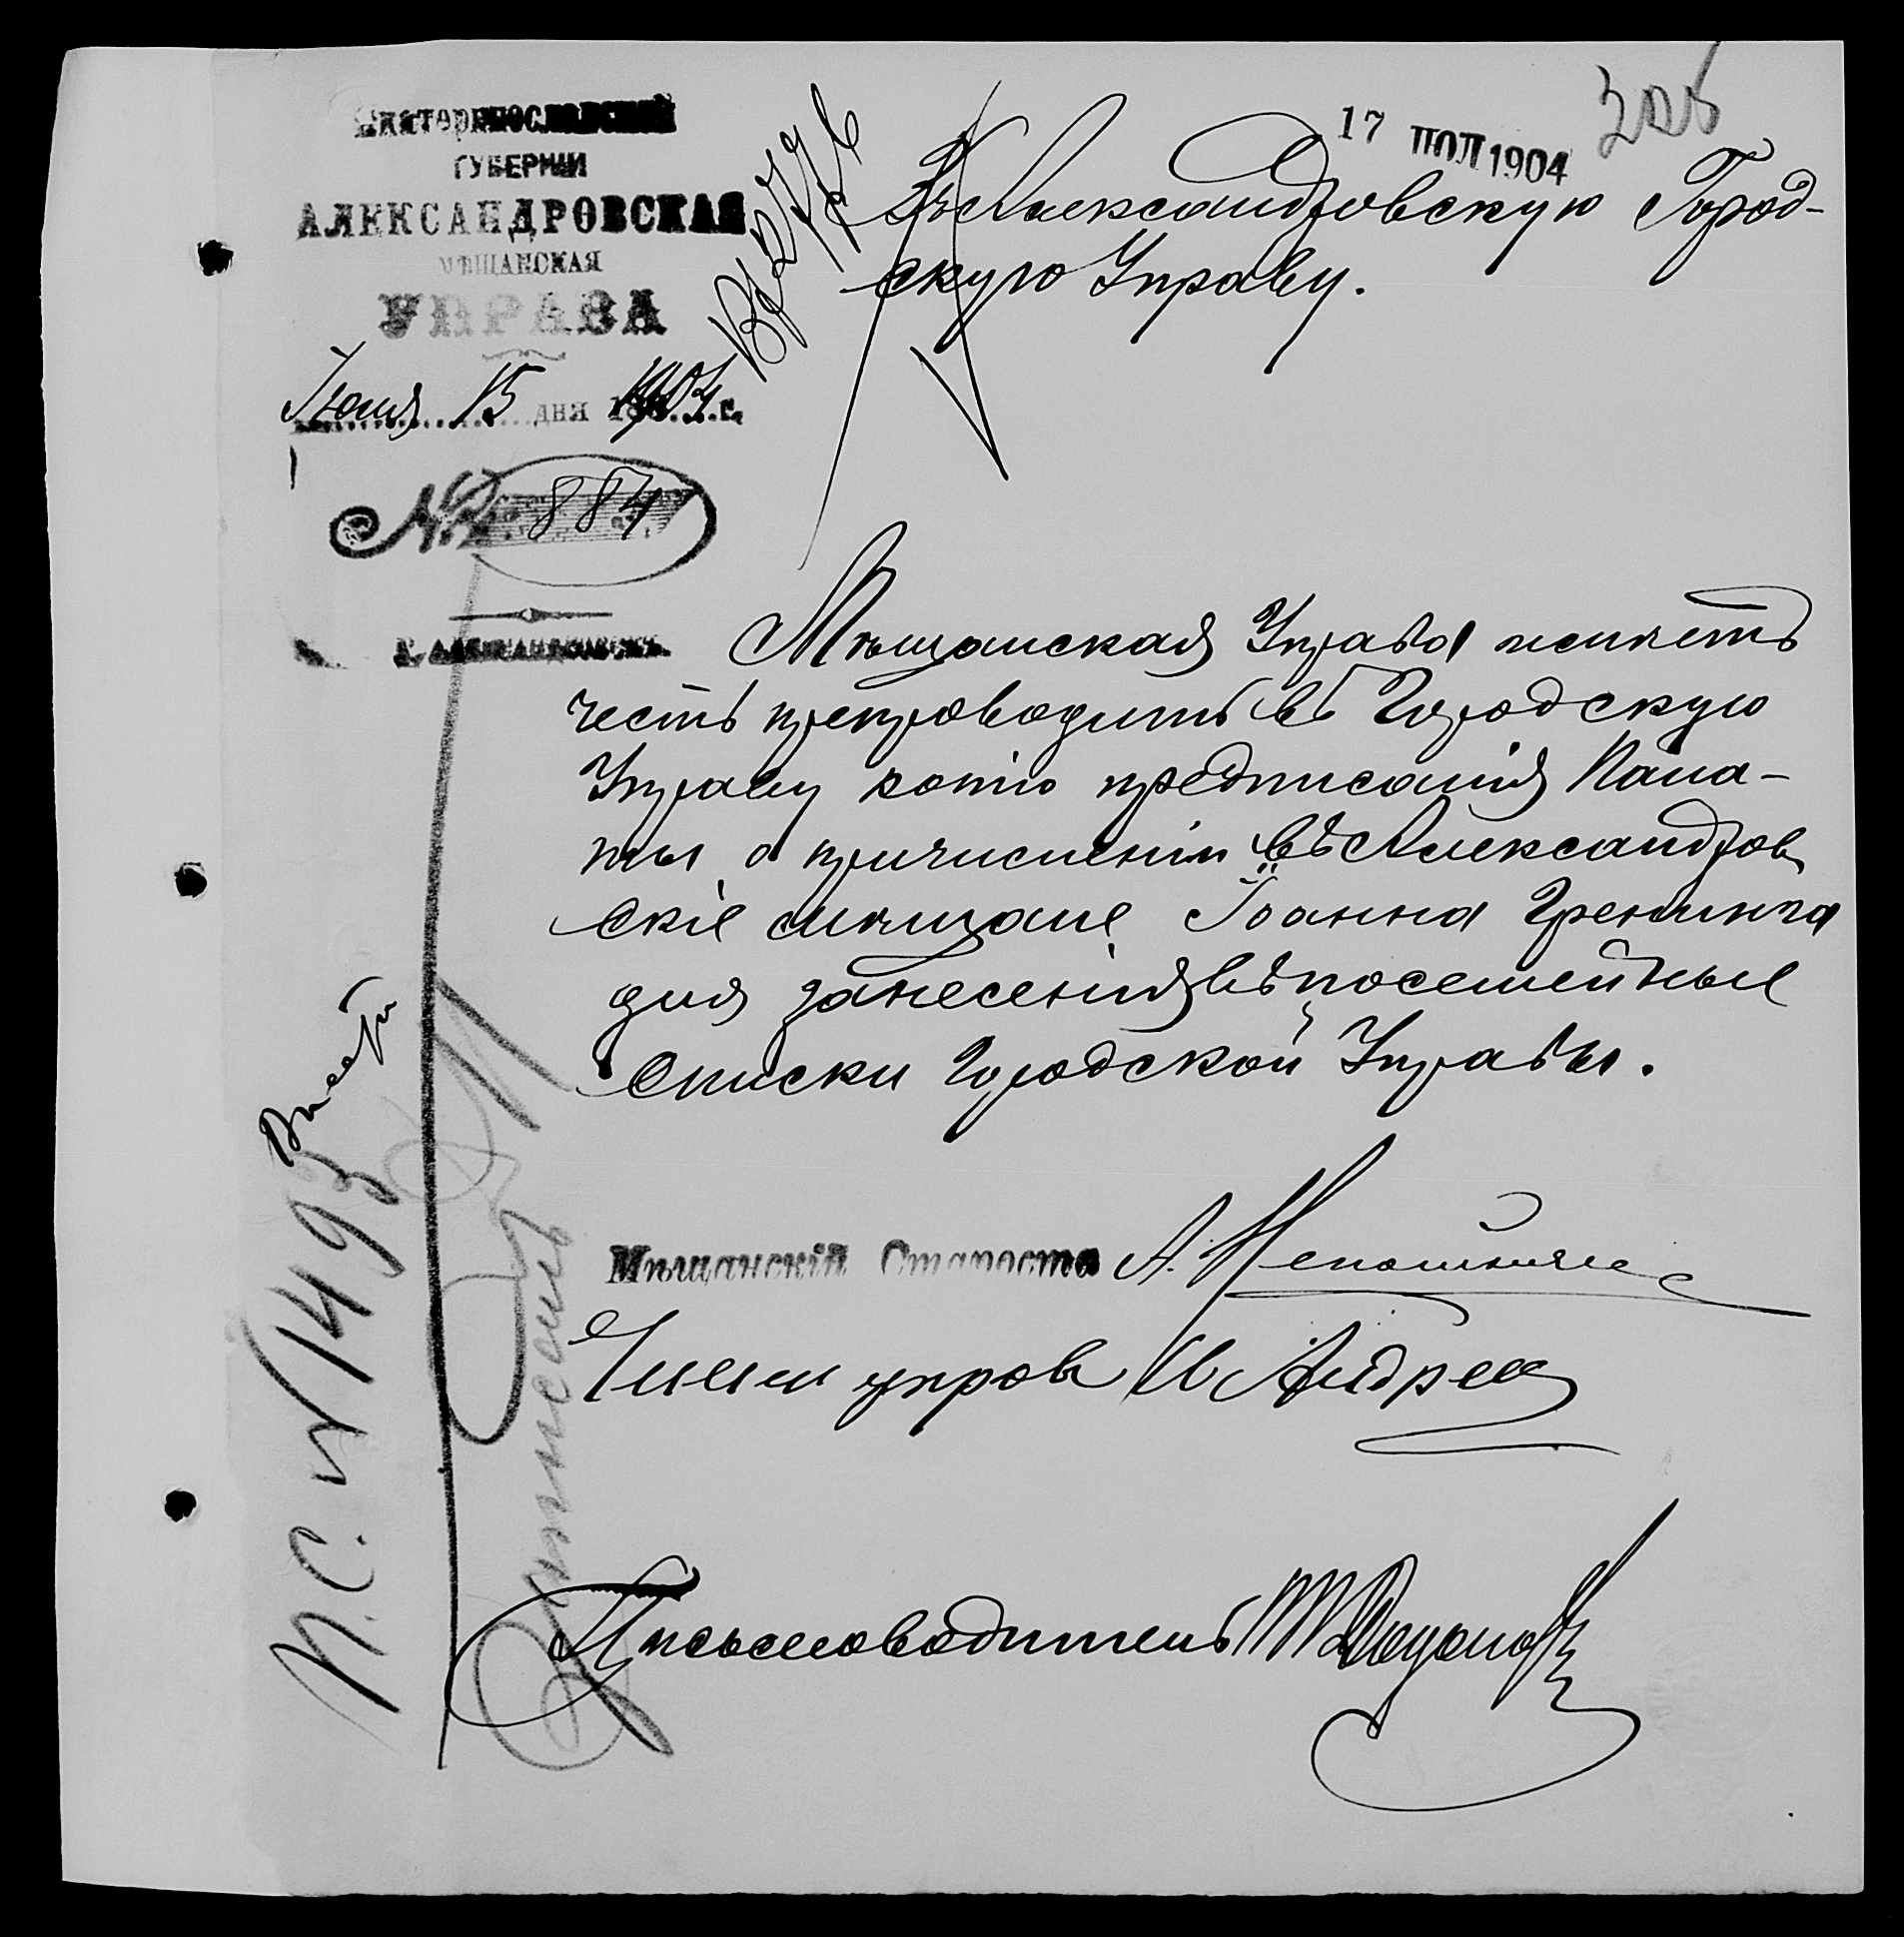 Екатеринославской
ГУБЕРНІИ
АЛЕКСАНДРОВСКАЯ
МѢЩАНСКАЯ
УПРАВА
15 дня 1904 г.
№ 884
Г. Александровскъ.
17 ІЮЛ 1904
Въ Александровскую Город-
скую Управу.
Мѣщанская Управа имѣетъ
честь препроводить въ Городскую
Управу копію предписанія Пала-
ты о причисленіи въ Александров
скіе мѣщане Іоанна Гренинга
для занесенія въ посемейные
списки Городской Управы.
Мѣщанскій Староста А.
Члены управ
Письмоводитель
П.С. № 1493